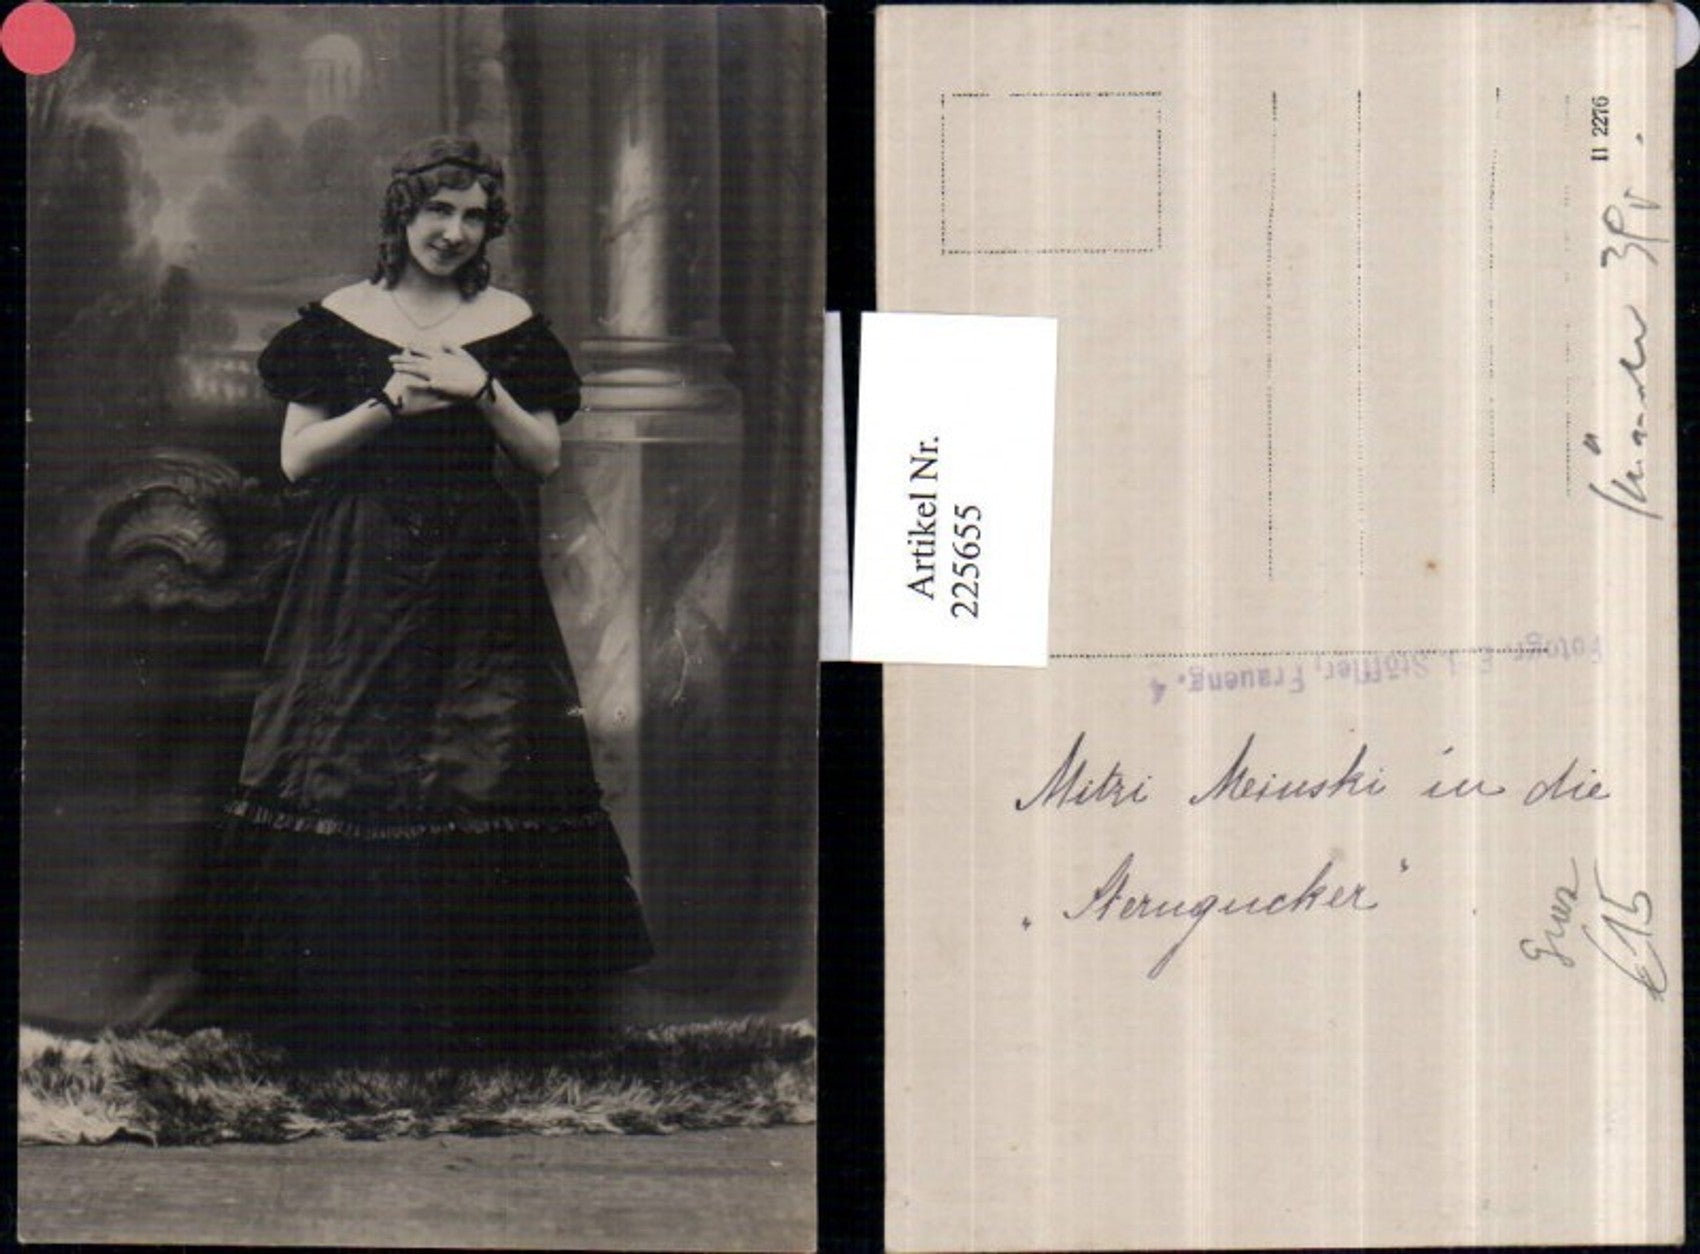 Artikel Nr.
225655
II 2276
Fotogr. Stöffler, Fraueng. 4
Mitzi Meinski in die
„Sterngucker“
€ 15